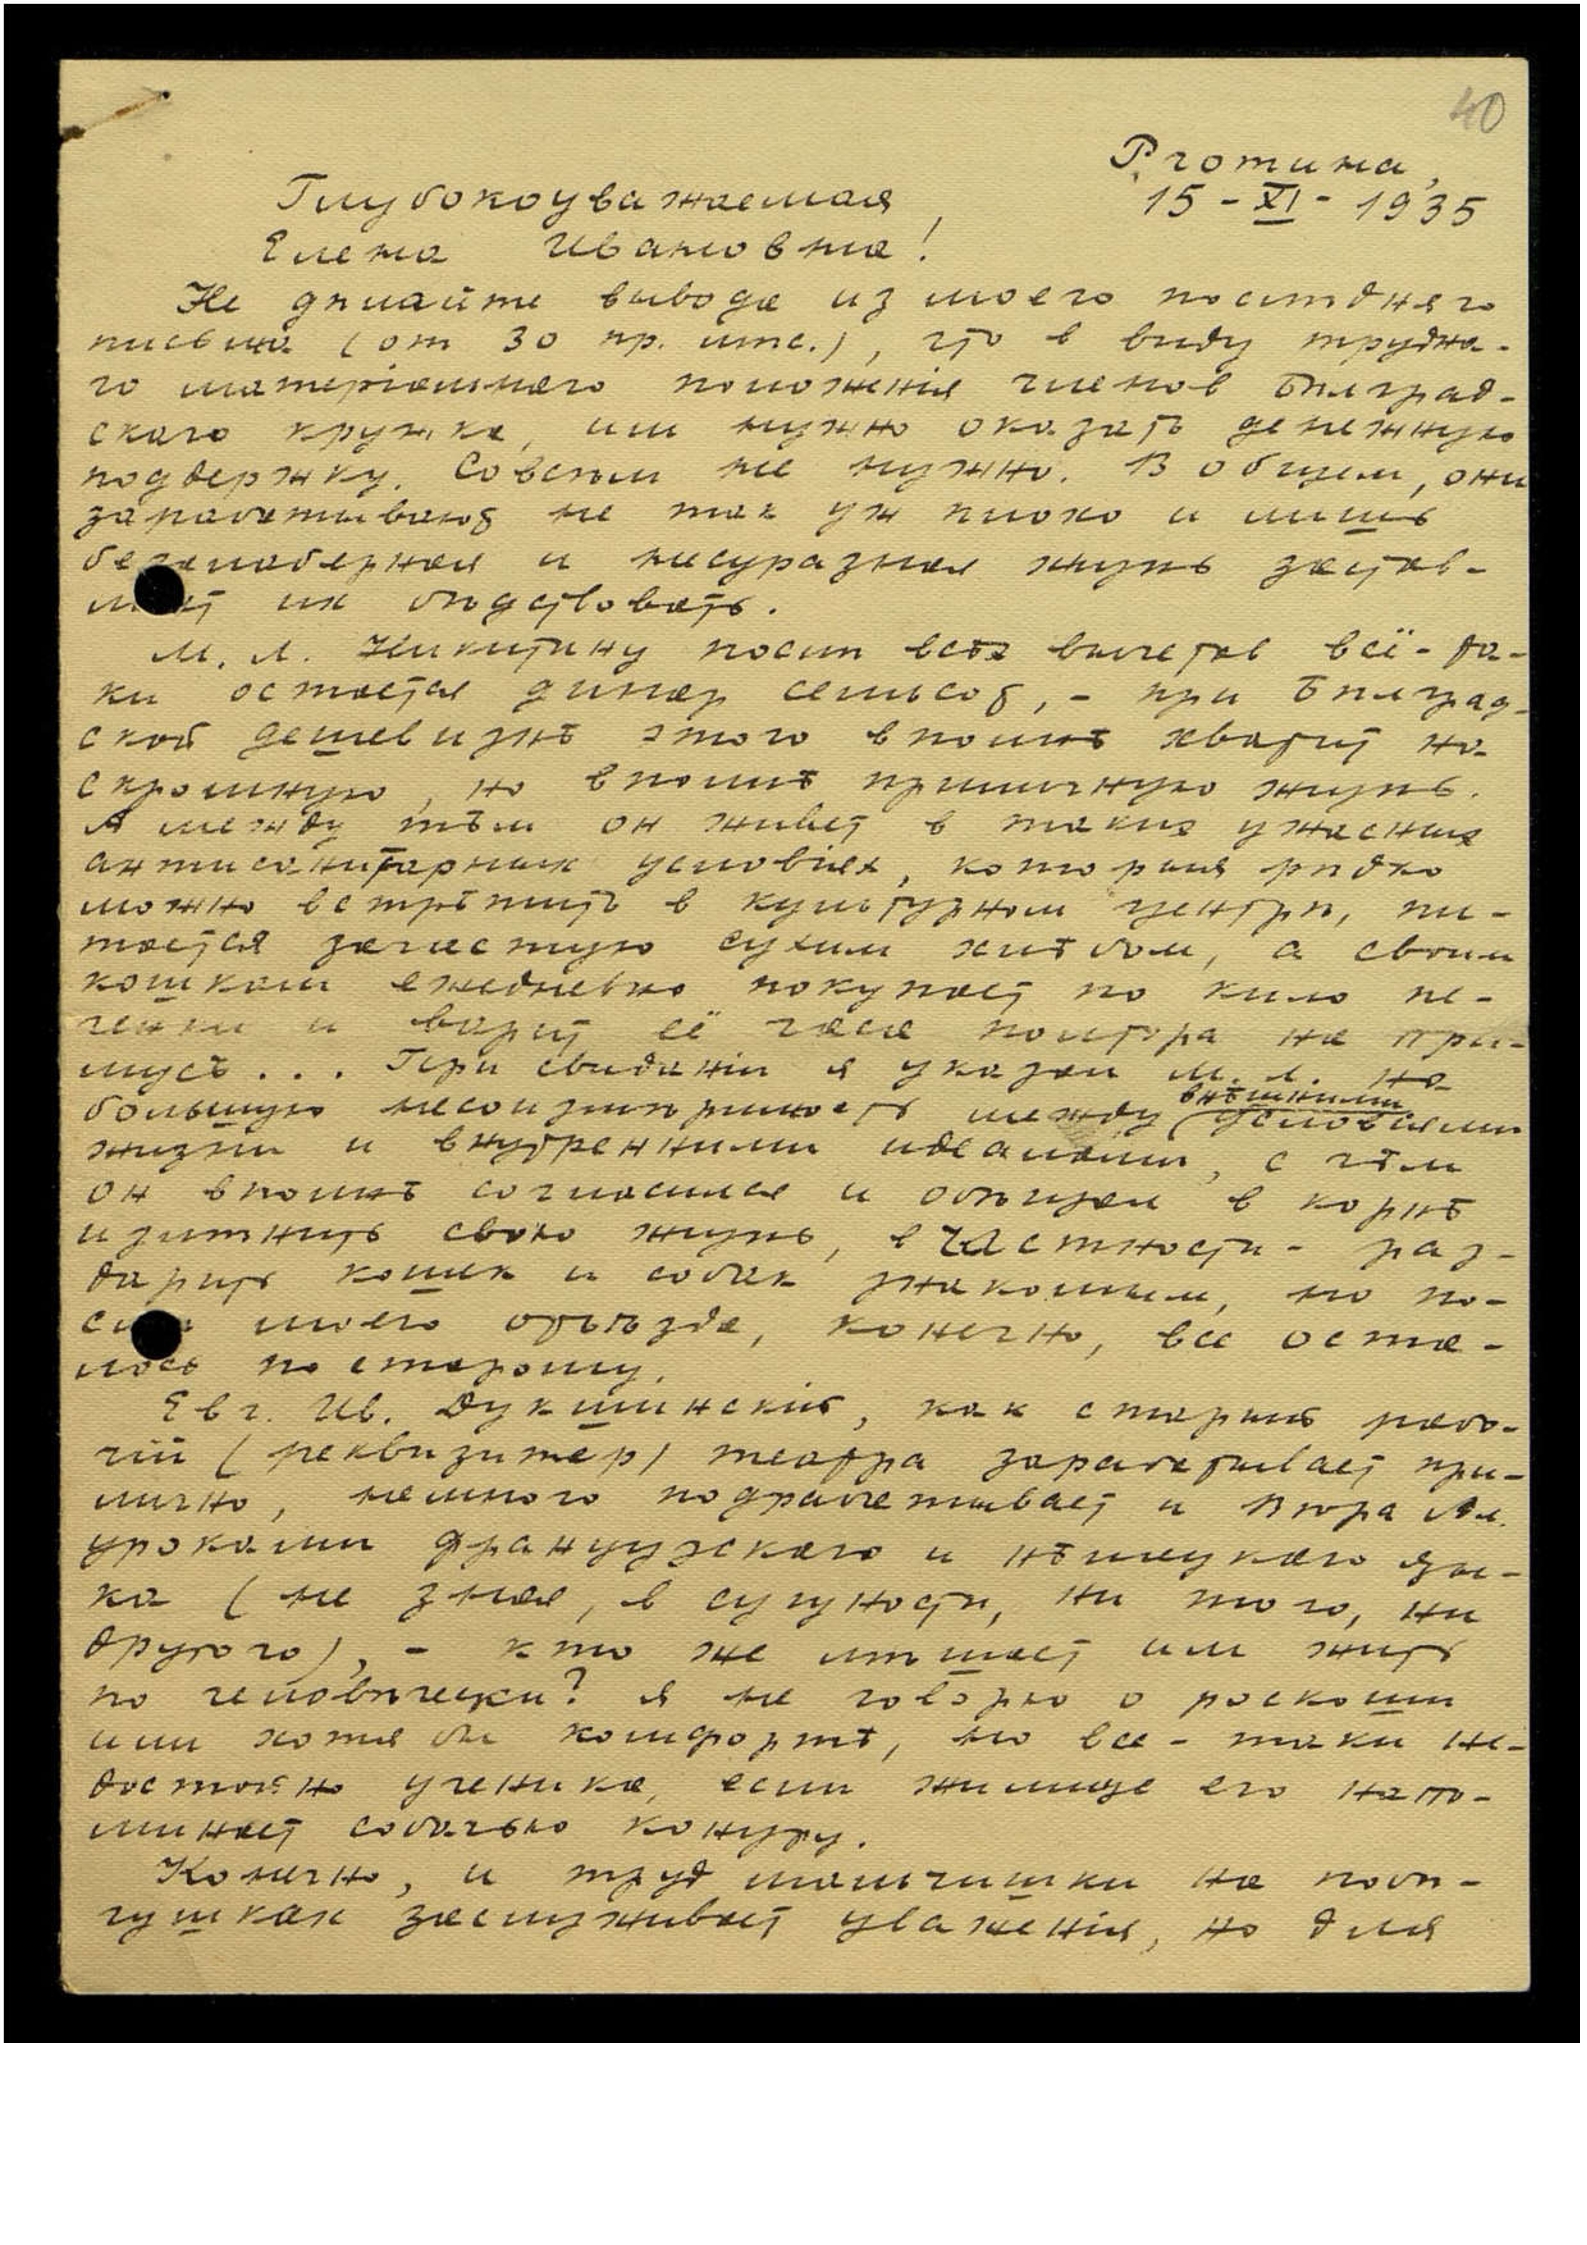 40
Рготина,
15-XI-1935
Глубокоуважаемая
Елена Ивановна!
Не дѣлайте вывода из моего послѣдняго
письма (от 30 пр. мѣс.), что в виду трудна-
го матеріальнаго положенія членов Бѣлград-
скаго кружка, им нужно оказать денежную
поддержку. Совсѣм не нужно. В общем, они
зарабатывают не так уж плохо и лишь
безалаберная и несуразная жизнь застав-
ляет их бѣдствовать.
М. Л. Никитину послѣ всѣх вычетов всё-та-
ки остается динар семьсот, - при Бѣлград-
ской дешевизнѣ этого вполнѣ хватит на
скромную, но вполнѣ приличную жизнь.
А между тѣм он живет в таких ужасных
антисанитарных условіях, которыя рѣдко
можно встрѣтить в культурном центрѣ, пи-
тается зачастую сухим хлѣбом, а своим
кошкам ежедневно покупает по кило пе-
ченки и варит её часа полтора на при-
мусѣ... При свиданіи я указал М. Л. на
большую несоизмѣримость между внѣшними условіями
жизни и внутренними идеалами, с чѣм
он вполнѣ согласился и обѣщал в корнѣ
измѣнить свою жизнь, в частности - раз-
дарить кошек и собак знакомым, но по-
слѣ моего отъѣзда, конечно, все оста-
лось по старому.
Евг. Ив. Дукшинскій, как старшій рабо-
чій (реквизитер) театра зарабатывает при-
лично, немного подрабатывает и Вѣра Ал.
уроками французскаго и нѣмецкаго язы-
ка (не зная, в сущности, ни того, ни
другого), - кто же мѣшает им жить
по человѣчески? Я не говорю о роскоши
или хотя бы комфортѣ, но все-таки не-
достойно ученика, если жилище его напо-
минает собачью конуру.
Конечно, и труд мальчишки на побѣ-
гушках заслуживает уваженія, но для